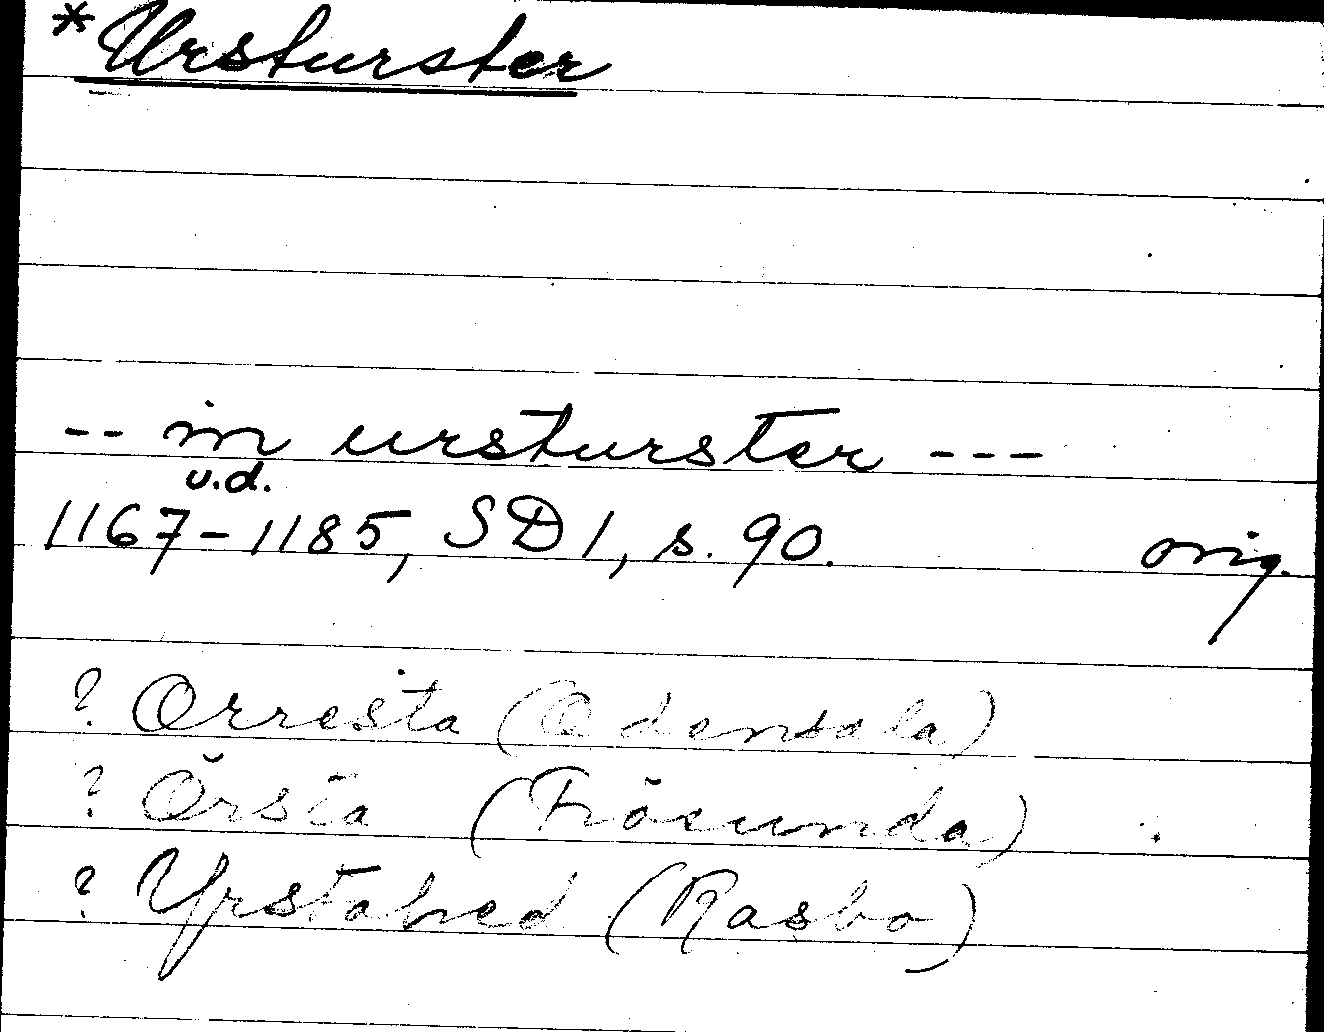 *Ursturster
-- in ursturster ---
u.d.
1167-1185, SD 1, s. 90. orig.
? Orresta (Odensala)
? Örsta (Frösunda)
? Yrstahed (Rasbo)